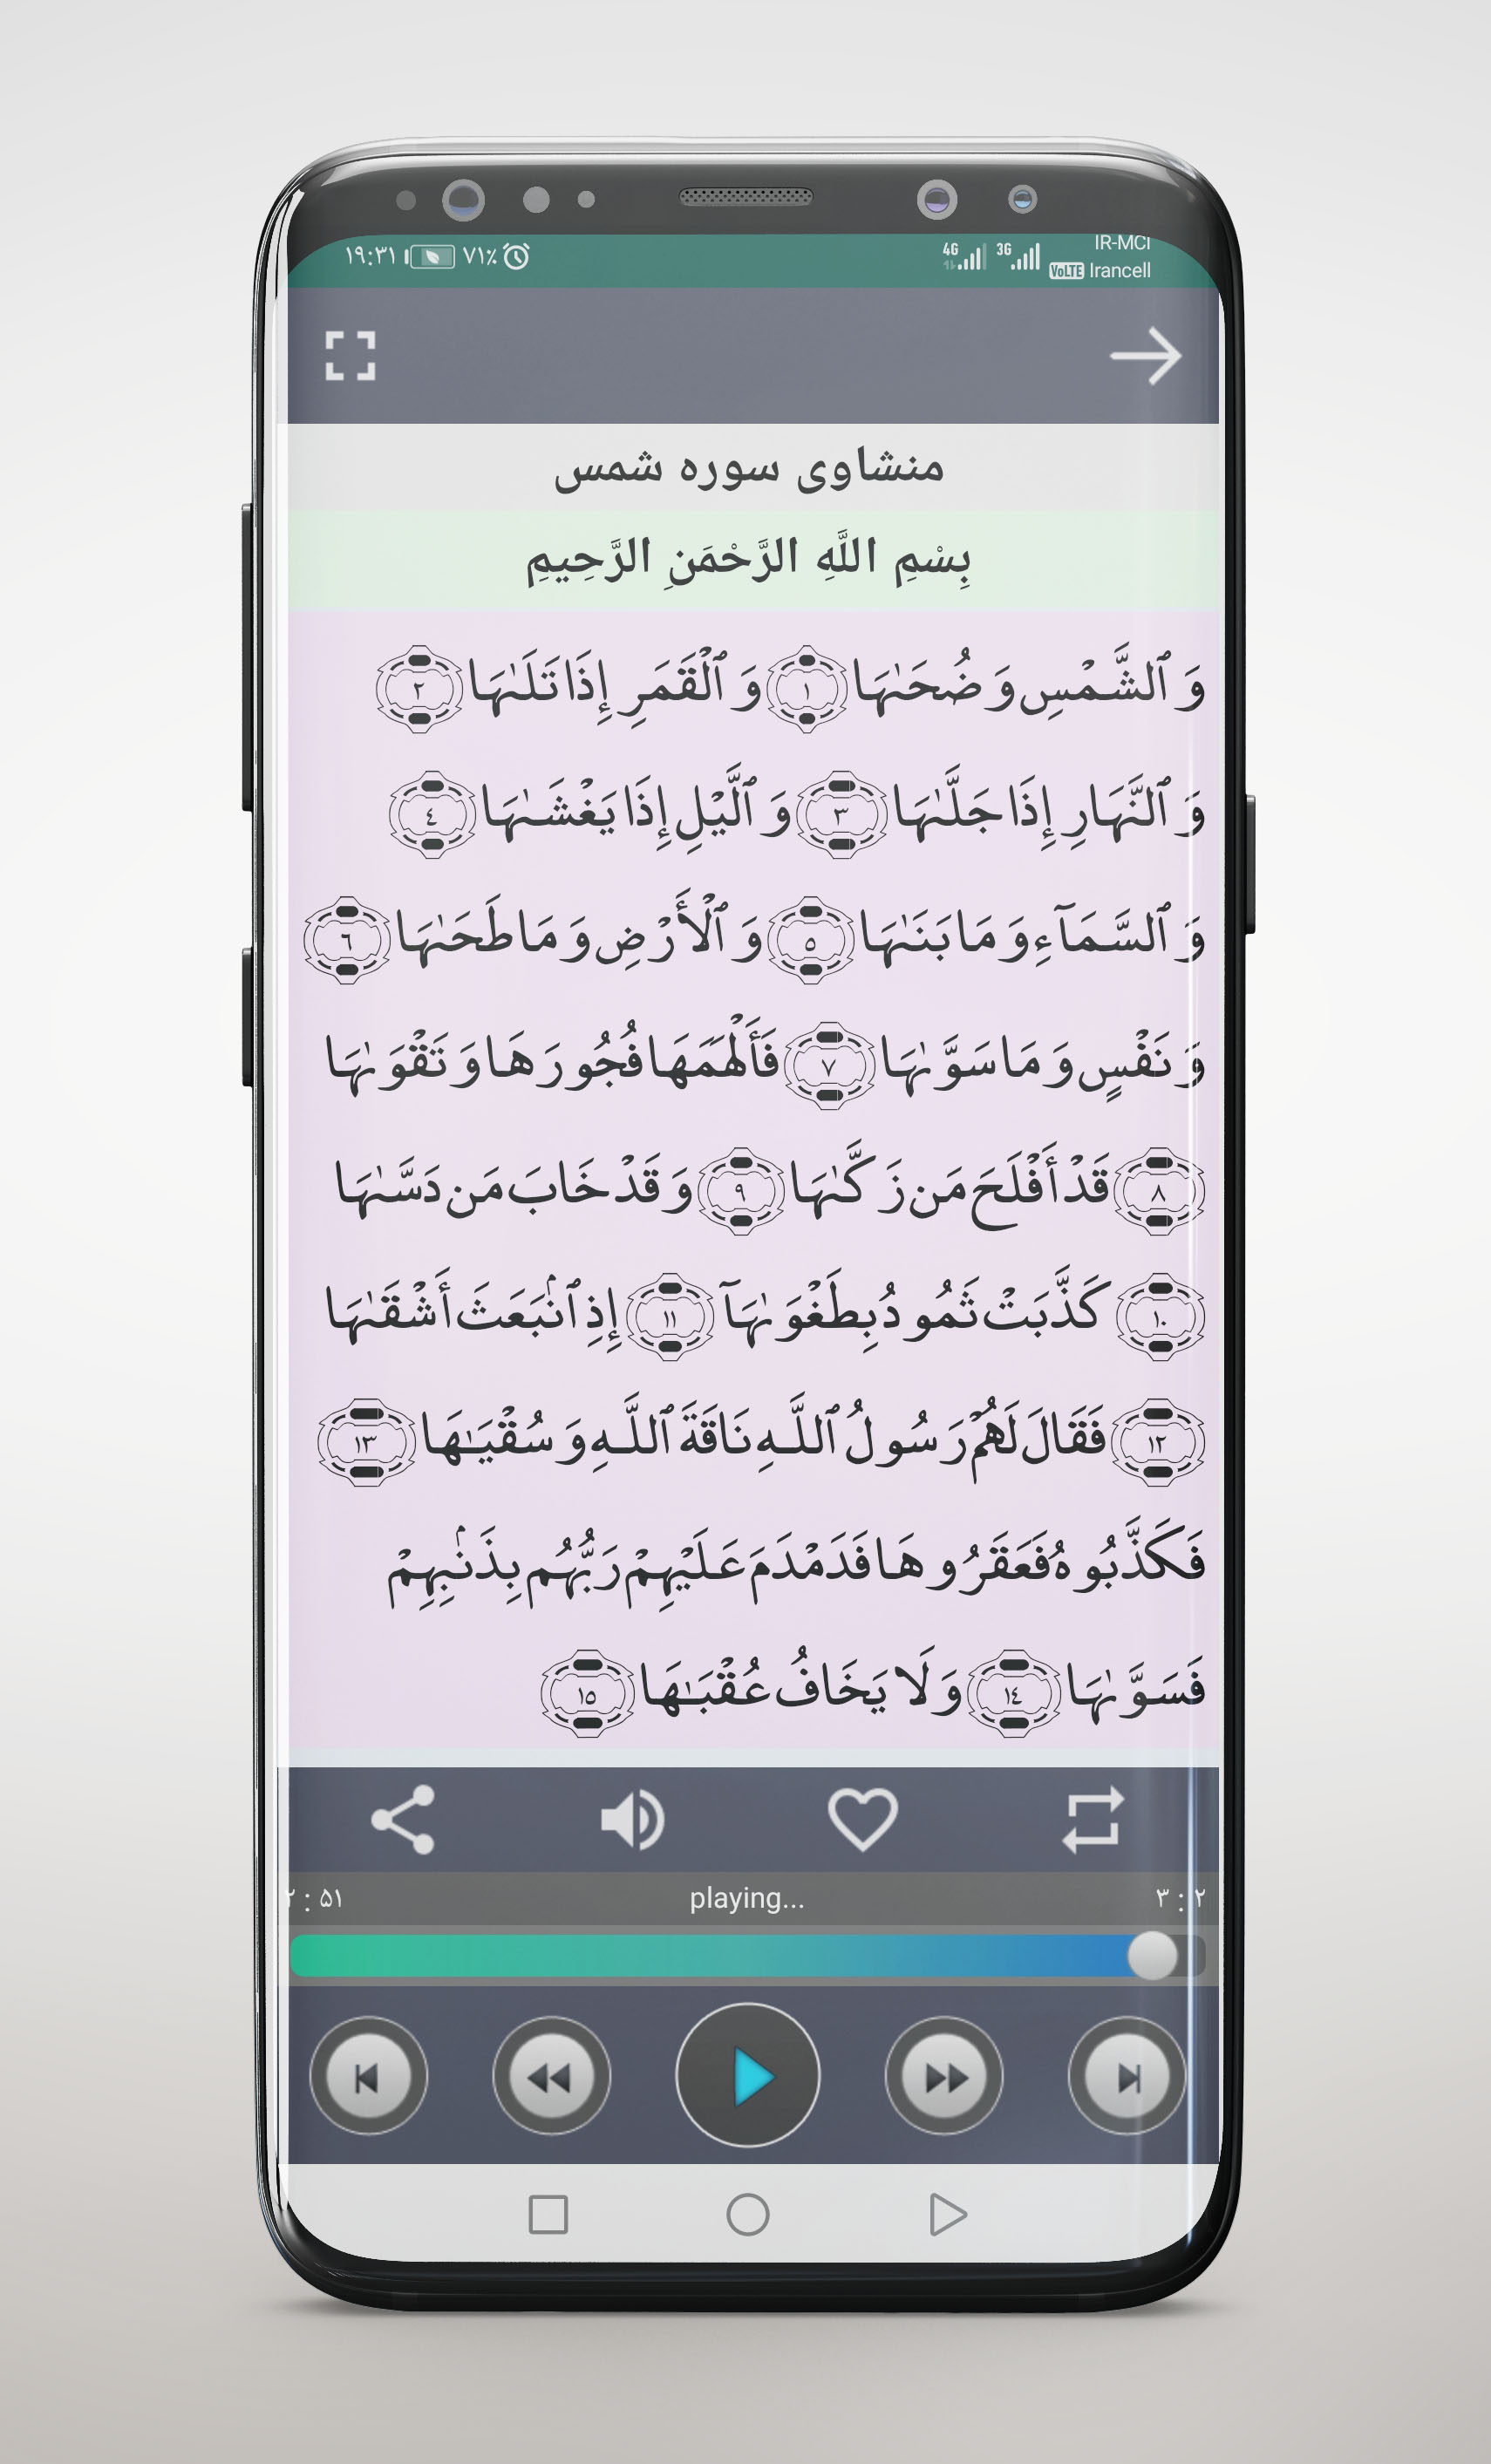 ۱۹:۳۱ ۷۱٪ 4G 3G IR-MCI
VoLTE Irancell
منشاوی سوره شمس
بِسْمِ اللَّهِ الرَّحْمَنِ الرَّحِيمِ
وَٱلشَّمْسِ وَضُحَىٰهَا ١ وَٱلْقَمَرِ إِذَا تَلَىٰهَا ٢
وَٱلنَّهَارِ إِذَا جَلَّىٰهَا ٣ وَٱلَّيْلِ إِذَا يَغْشَىٰهَا ٤
وَٱلسَّمَآءِ وَمَا بَنَىٰهَا ٥ وَٱلْأَرْضِ وَمَا طَحَىٰهَا ٦
وَنَفْسٍ وَمَا سَوَّىٰهَا ٧ فَأَلْهَمَهَا فُجُورَهَا وَتَقْوَىٰهَا
٨ قَدْ أَفْلَحَ مَن زَكَّىٰهَا ٩ وَقَدْ خَابَ مَن دَسَّىٰهَا
١٠ كَذَّبَتْ ثَمُودُ بِطَغْوَىٰهَآ ١١ إِذِ ٱنۢبَعَثَ أَشْقَىٰهَا
١٢ فَقَالَ لَهُمْ رَسُولُ ٱللَّهِ نَاقَةَ ٱللَّهِ وَسُقْيَـٰهَا ١٣
فَكَذَّبُوهُ فَعَقَرُوهَا فَدَمْدَمَ عَلَيْهِمْ رَبُّهُم بِذَنۢبِهِمْ
فَسَوَّىٰهَا ١٤ وَلَا يَخَافُ عُقْبَـٰهَا ١٥
۲ : ۵۱ playing... ۳ : ۲